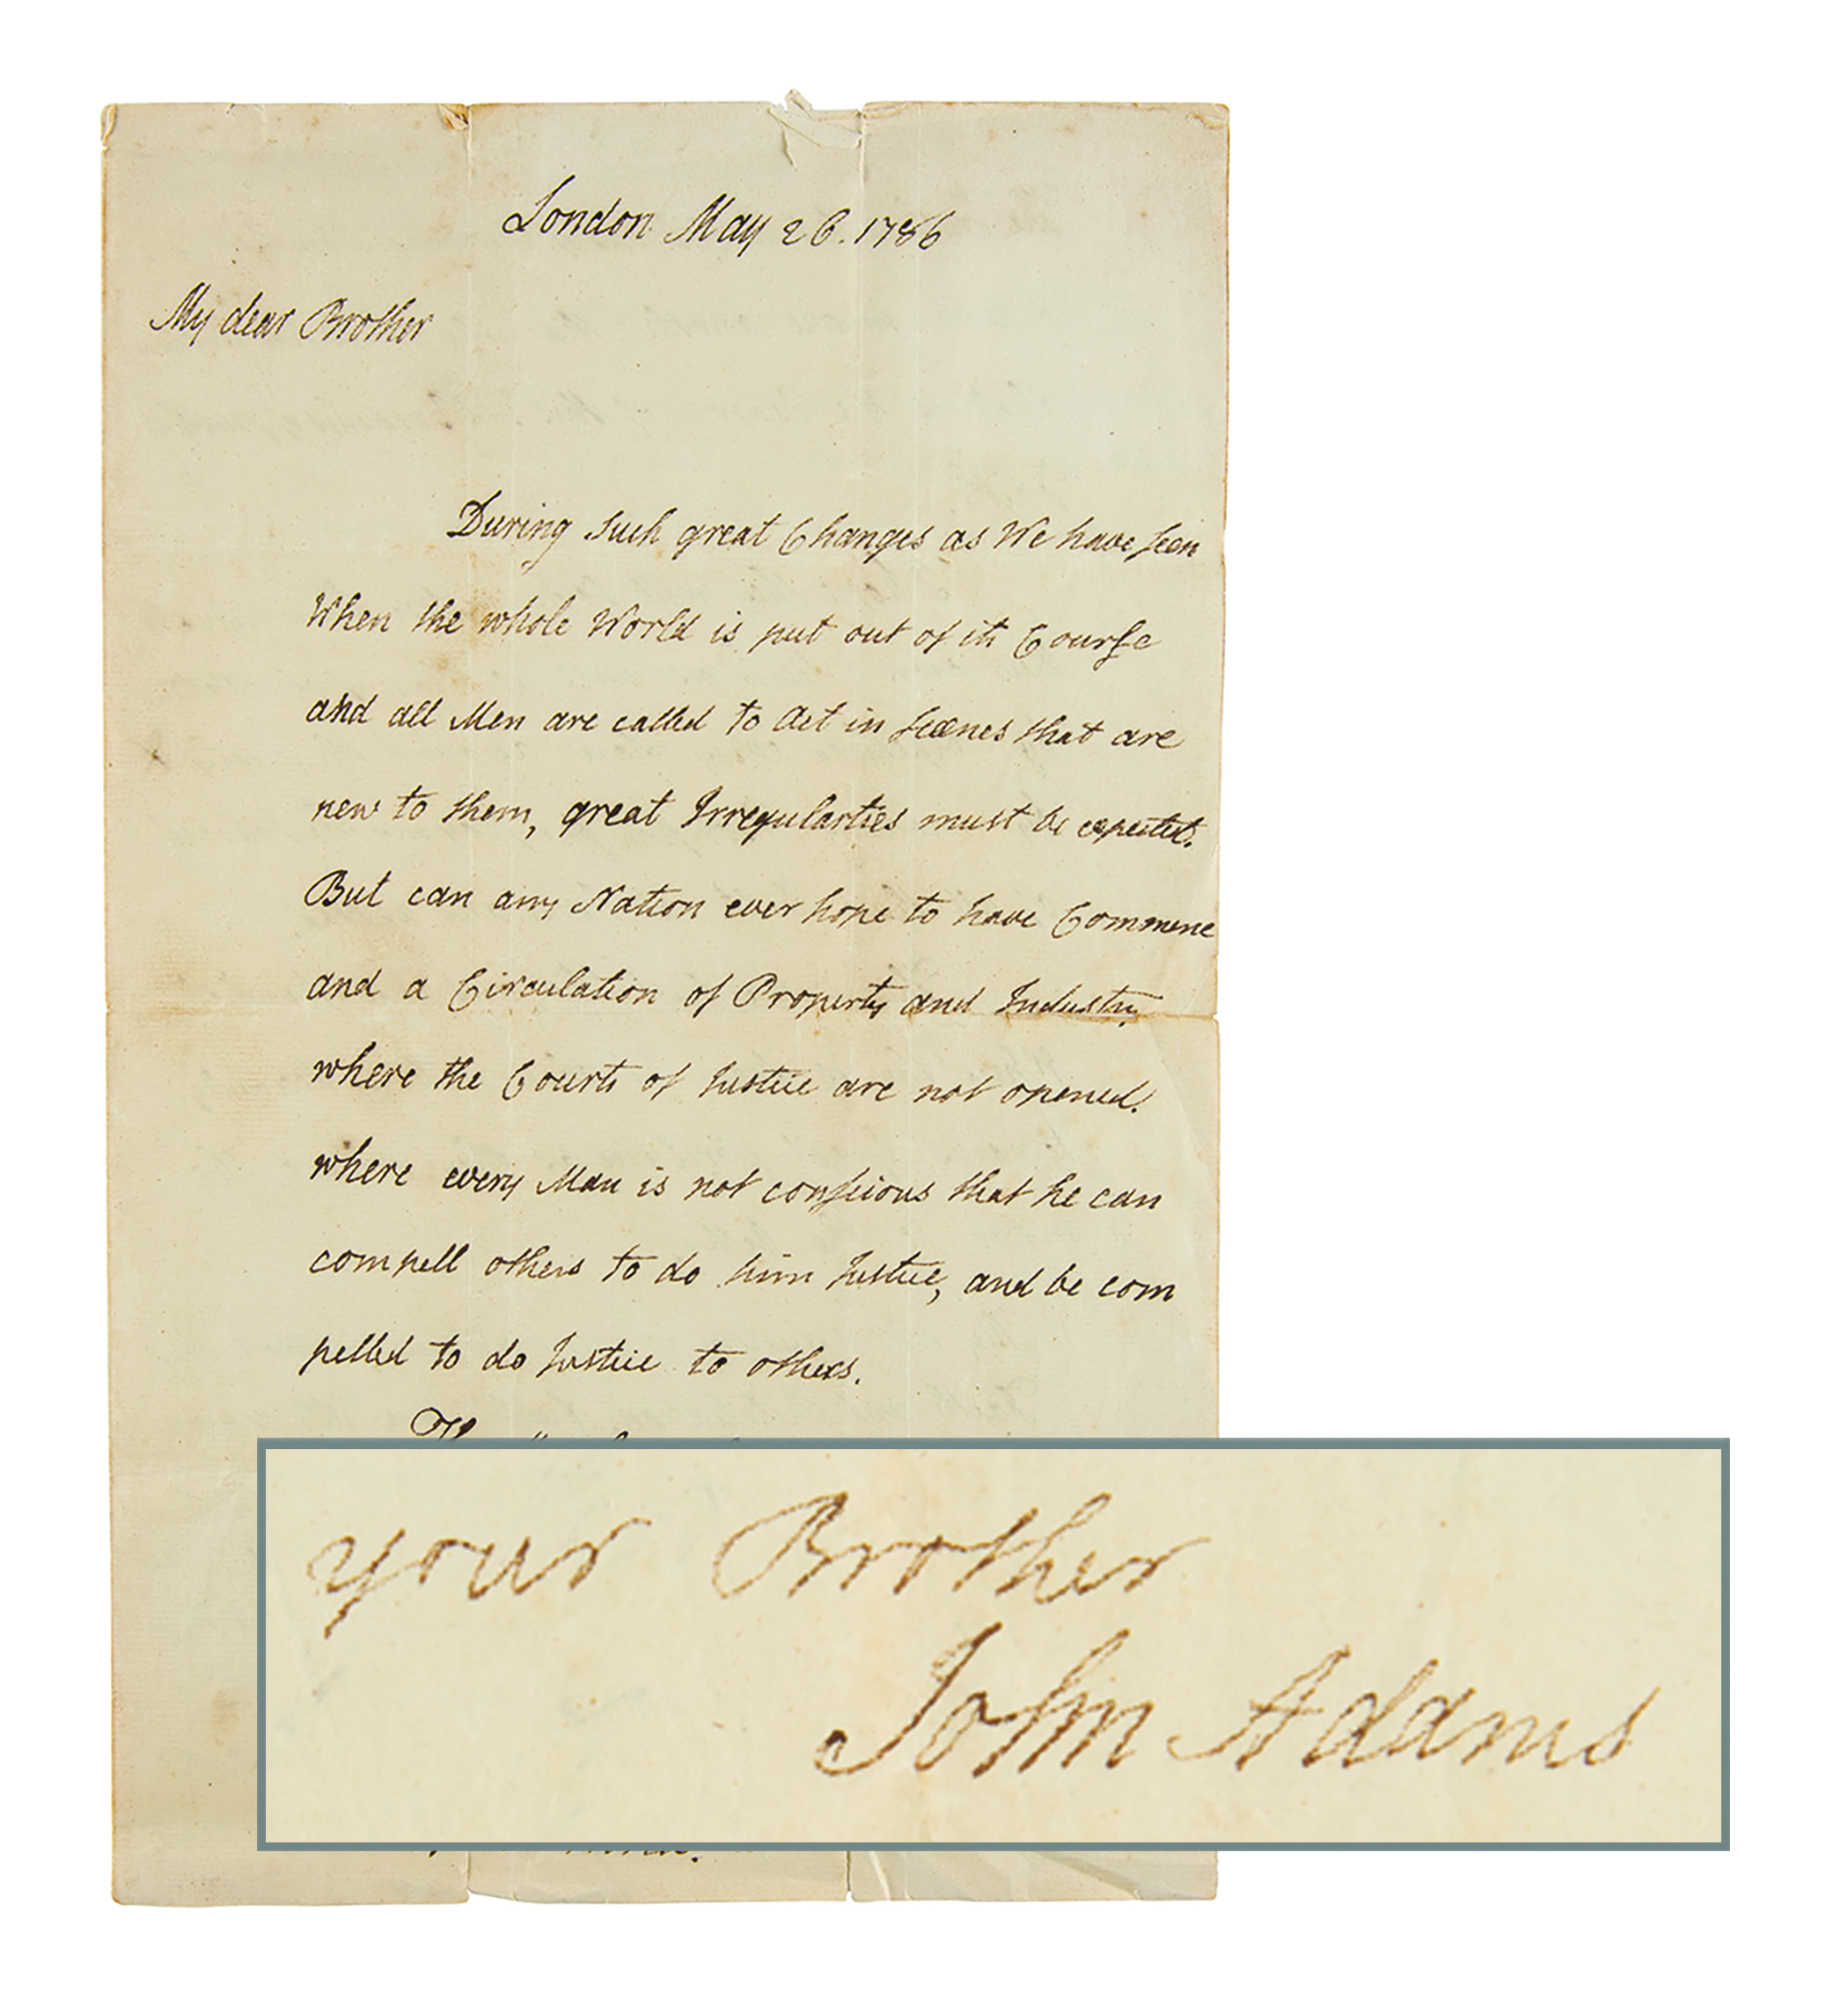 London May 26. 1786
My dear Brother
During such great Changes as We have seen
When the whole World is put out of its Course
and all Men are called to Act in scænes that are
new to them, great Irregularties must be expected.
But can any Nation ever hope to have Commerce
and a Circulation of Property and Industry,
where the Courts of Justice are not opened.
where every Man is not conscious that he can
compell others to do him Justice, and be com
pelled to do Justice to others.
your Brother
John Adams